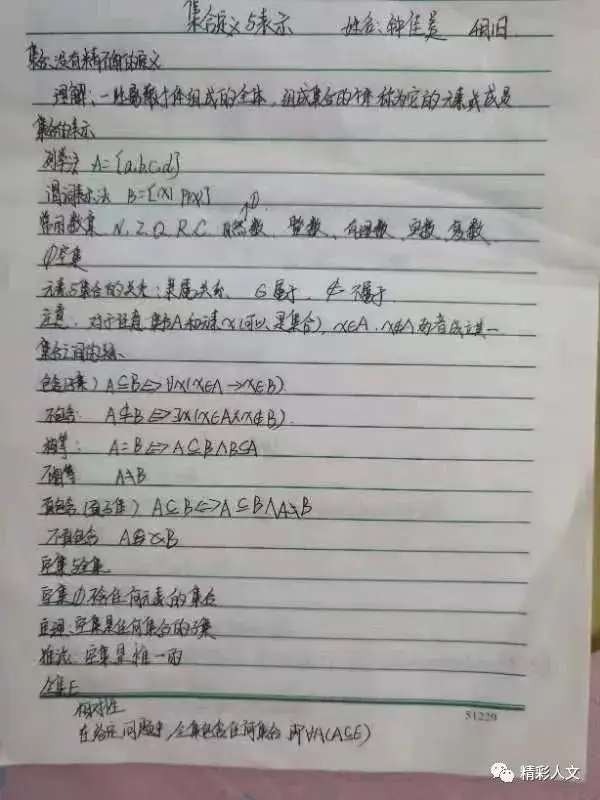 集合定义与表示 姓名:钟佳美
集合没有精确的定义
理解:一些离散个体组成的全体,组成集合的个体称为它的元素或成员
集合的表示
列举法 A={a,b,c,d}
谓词表示法 B={x| P(x)}
常用数集 N, Z, Q, R, C 自然数、整数、有理数、实数、复数
∅空集
元素与集合的关系:隶属关系 ∈属于,∉不属于
注意:对于任意集合A和元素x(可以是集合),x∈A,x∉A两者成立其一
集合之间的关系
包含(子集) A⊆B⇔∀x(x∈A→x∈B)
不包含: A⊈B⇔∃x(x∈A∧x∉B)
相等: A=B⇔A⊆B∧B⊆A
不相等 A≠B
真包含(真子集) A⊂B⇔A⊆B∧A≠B
不真包含
空集与全集
空集∅不含任何元素的集合
定理:空集是任何集合的子集
推论 空集是惟一的
全集E
相对性
在给定问题中,全集包含任何集合 即∀A(A⊆E)
51229
精彩人文